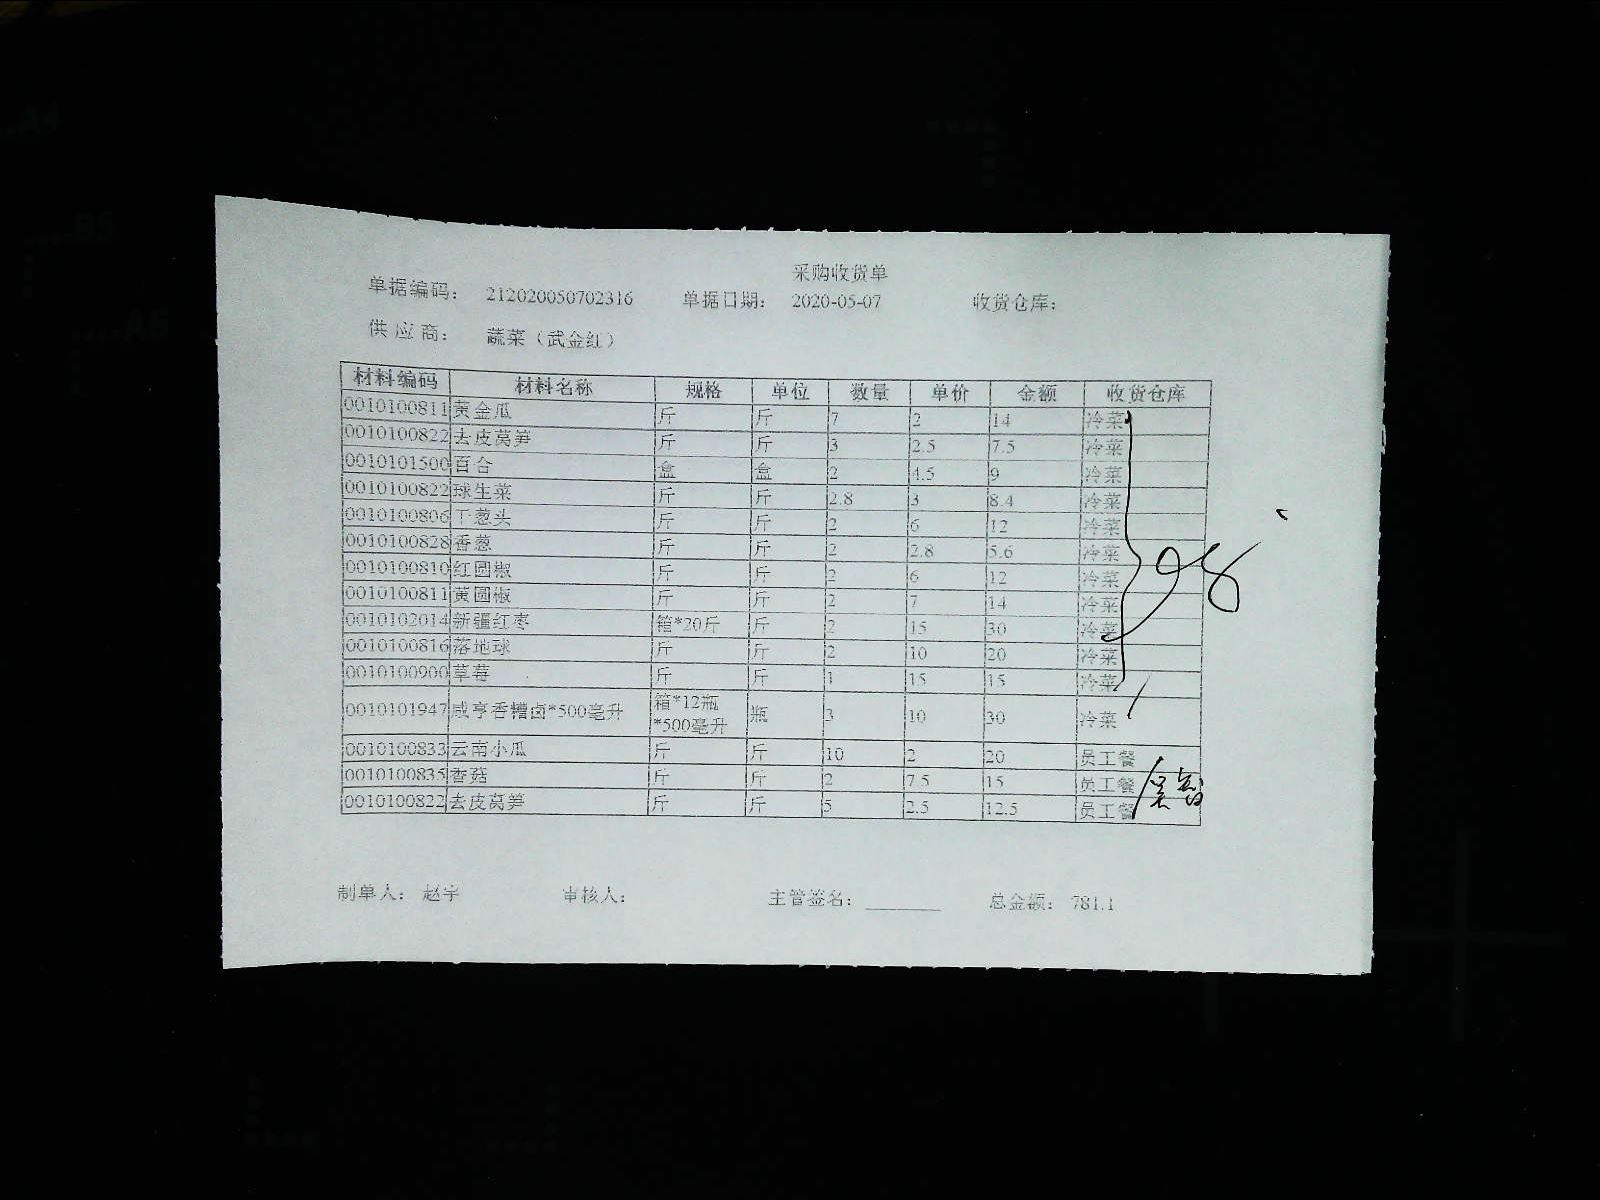 采购收货单
单据编码： 212020050702316 单据日期： 2020-05-07 收货仓库：
供应商： 蔬菜（武金红）
材料编码 材料名称 规格 单位 数量 单价 金额 收货仓库
0010100811 黄金瓜 斤 斤 7 2 14 冷菜
0010100822 去皮莴笋 斤 斤 3 2.5 7.5 冷菜
0010101500 百合 盒 盒 2 4.5 9 冷菜
0010100822 球生菜 斤 斤 2.8 3 8.4 冷菜
0010100806 干葱头 斤 斤 2 6 12 冷菜
0010100828 香葱 斤 斤 2 2.8 5.6 冷菜
0010100810 红圆椒 斤 斤 2 6 12 冷菜
0010100811 黄圆椒 斤 斤 2 7 14 冷菜
0010102014 新疆红枣 箱*20斤 斤 2 15 30 冷菜
0010100816 落地球 斤 斤 2 10 20 冷菜
0010100900 草莓 斤 斤 1 15 15 冷菜
0010101947 咸亨香糟卤*500毫升 箱*12瓶*500毫升 瓶 3 10 30 冷菜
0010100833 云南小瓜 斤 斤 10 2 20 员工餐
0010100835 香菇 斤 斤 2 7.5 15 员工餐
0010100822 去皮莴笋 斤 斤 5 2.5 12.5 员工餐
制单人： 赵宇 审核人： 主管签名： 总金额： 781.1